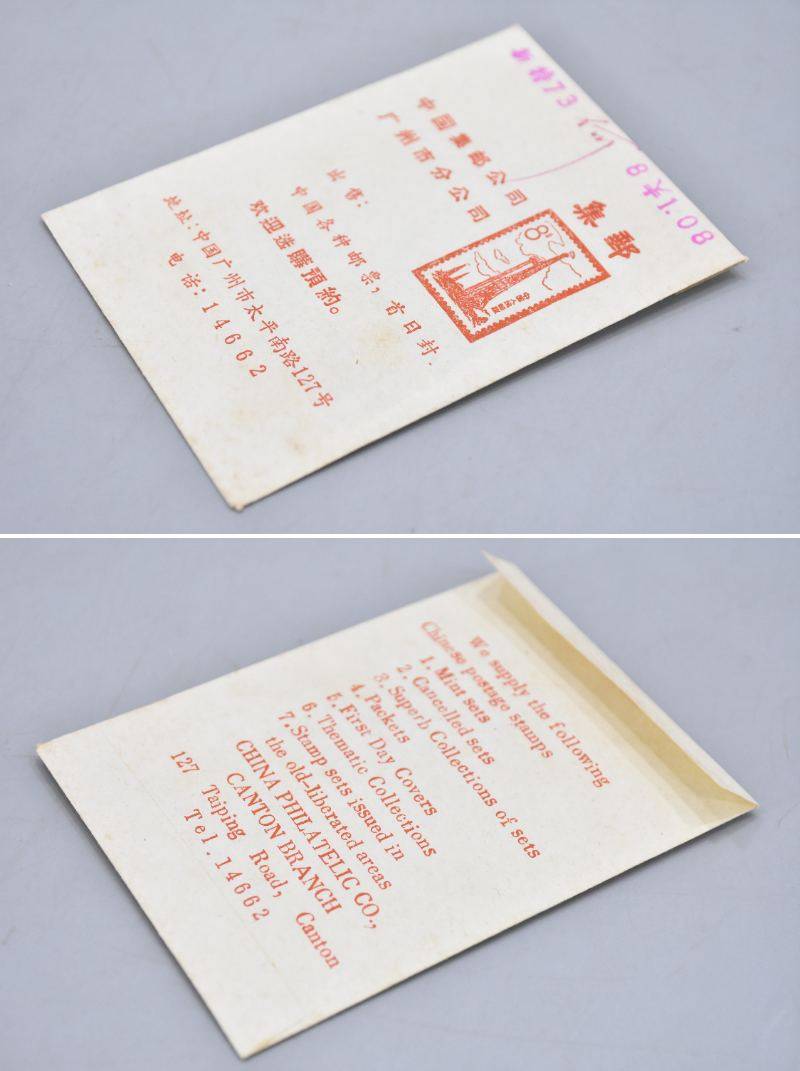 特73
8大1.08
集郵
8分
中国人民邮政
中国集邮公司
广州市分公司
出售:
中国各种邮票,首日封.
欢迎选購預約。
地址:中国广州市太平南路127号
电话:14662
We supply the following
Chinese postage stamps
1. Mint sets
2. Cancelled sets
3. Superb Collections of sets
4. Packets
5. First Day Covers
6. Thematic Collections
7. Stamp sets issued in
the old-liberated areas
CHINA PHILATELIC CO.,
CANTON BRANCH
127 Taiping Road, Canton
Tel.14662